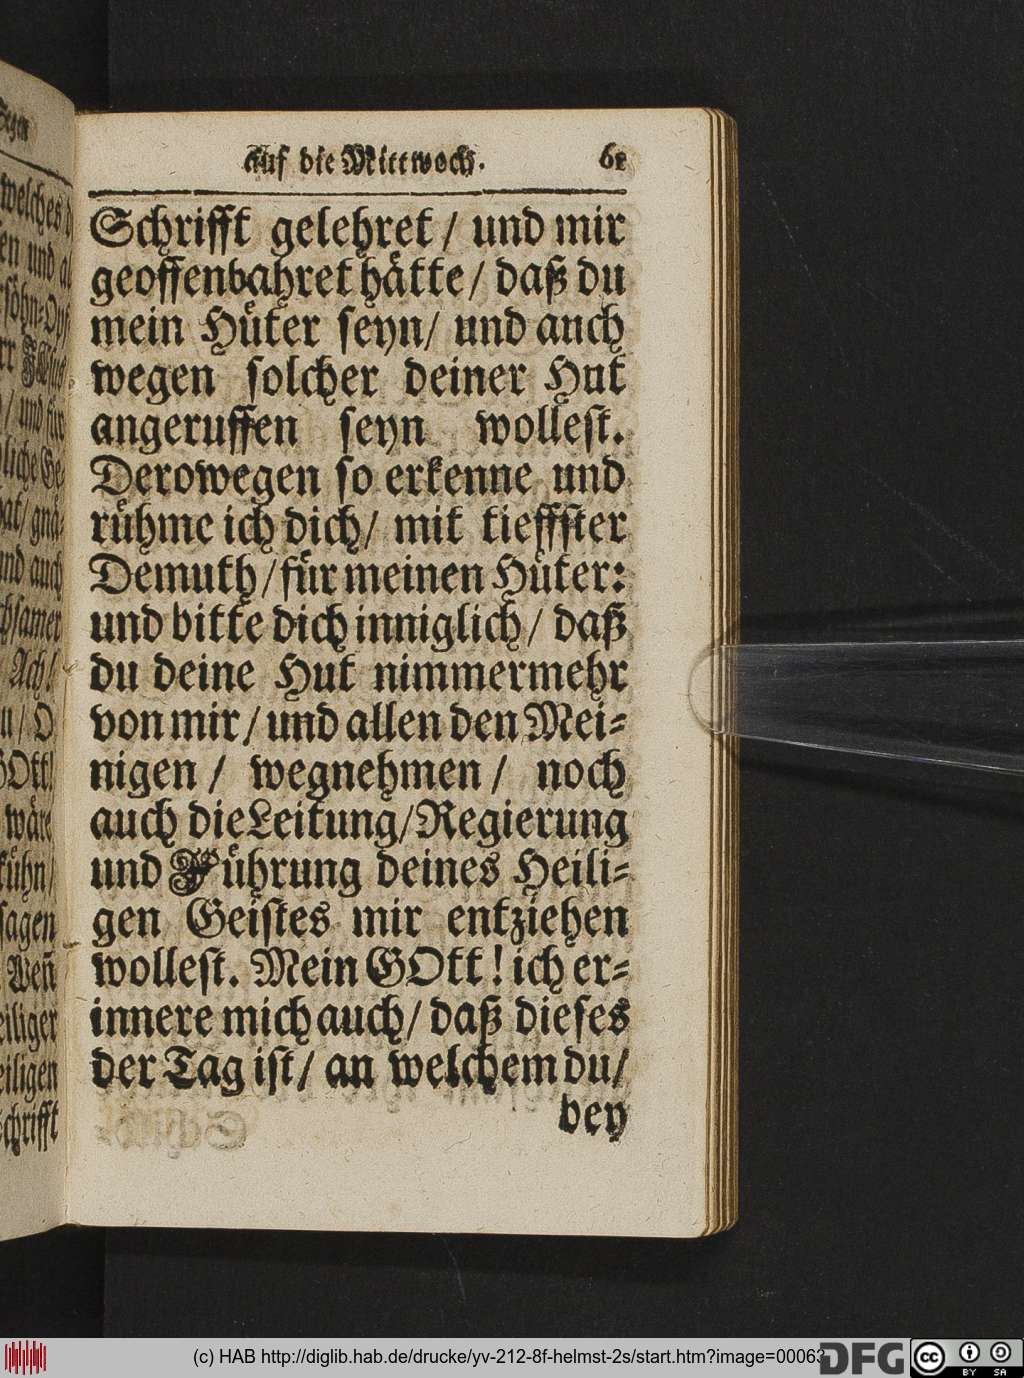 auf die Mittwoch. 61
Schrifft gelehret / und mir
geoffenbahret hätte / daß du
mein Hüter seyn / und auch
wegen solcher deiner Hut
angeruffen seyn wollest.
Derowegen so erkenne und
rühme ich dich / mit tieffster
Demuth / für meinen Hüter:
und bitte dich inniglich / daß
du deine Hut nimmermehr
von mir / und allen den Mei-
nigen / wegnehmen / noch
auch die Leitung / Regierung
und Führung deines Heili-
gen Geistes mir entziehen
wollest. Mein GOtt! ich er-
innere mich auch / daß dieses
der Tag ist / an welchem du /
bey
welches
und
und für
liche Ge-
hat / gnä-
und auch
Ach!
GOtt!
wäre
kühn /
sagen
Weñ
eiliger
eiligen
Schrifft
(c) HAB http://diglib.hab.de/drucke/yv-212-8f-helmst-2s/start.htm?image=00063
DFG
cc BY SA